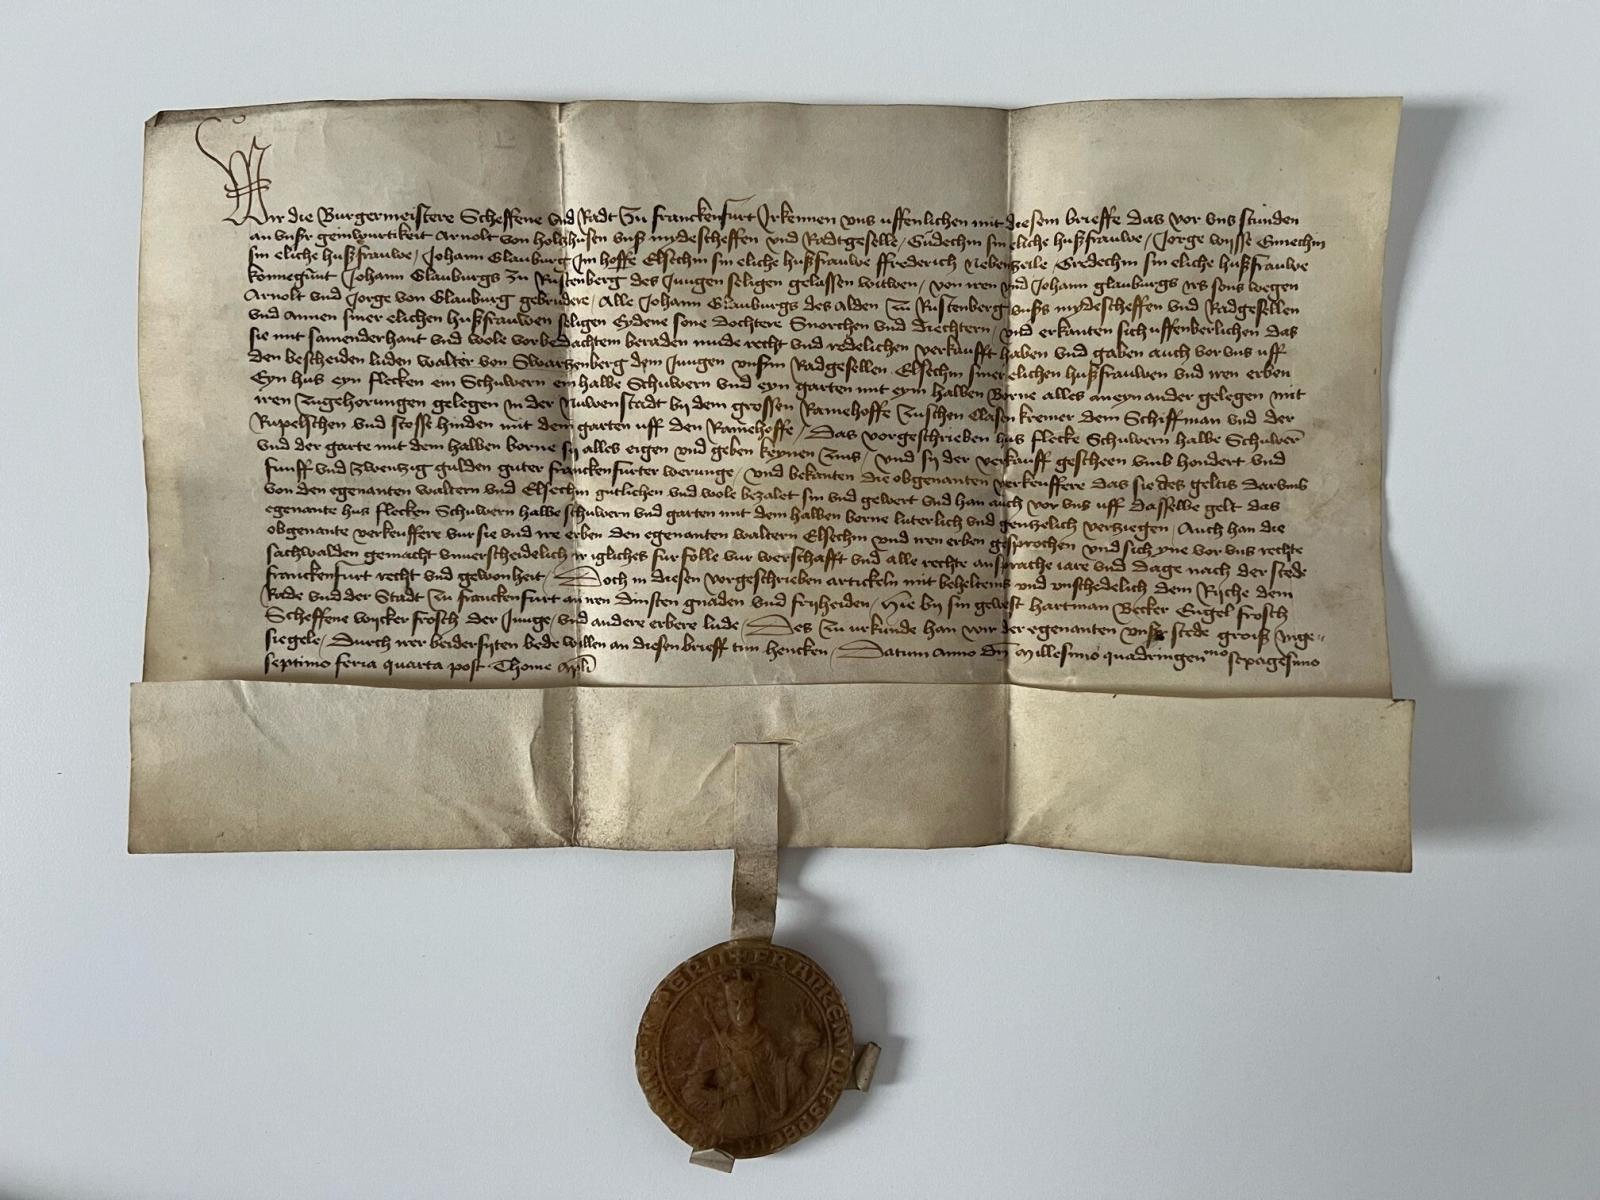 Wir die Burgermeistere Scheffene vnd Radt zu Franckenfurt Irkennen vns uffenlichen mit diesem brieffe das vor vns stunden
an vnsr geinwurtikeit Arnolt von Holtzhusen vnß mydescheffen vnd Radtgeselle / Gudechin sin eliche hußfrauwe / Jorge wysse Ennechin
sin eliche hußfrauwe / Johann Glauburg Im hoffe Elsechin sin eliche hußfrauwe ffrederich Nebenzeile / Gredechin sin eliche hußfrauwe
konnegunt Johann Glauburgs zu Rustenberg des Jungen seligen gelassen witwen / von iren vnd Johann glauburgs irs sons wegen
Arnolt vnd Jorge von Glauburg gebrudere / Alle Johann Glauburgs des Alden zu Rustenberg vnßs mydescheffen vnd Radgesellen
vnd Annen siner elichen hußfrauwen seligen Eydene sone dochtere Snorchen vnd diechtern / vnd erkanten sich uffenberlichen das
sie mit samenderhant vnd wole vorbedachtem beraden mude recht vnd redelichen verkaufft haben vnd gaben auch vor vns uff
den bescheiden luden Walter von Swartzenberg dem Jungen vnsm Radgesellen Elsechin siner elichen hußfrauwen vnd iren erben
Eyn hus eyn flecken ein Schuwern ein halbe Schuwern vnd eyn garten mit eym halben Borne alles aneynander gelegen mit
iren zugehorungen gelegen in der Nuwenstadt by dem grossen Ramehoffe zuschen Clasen kremer dem Schiffman vnd der
Rupelschen vnd stosse hinden mit dem garten uff den Ramehoffe / Das vorgeschrieben hus flecke Schuwern halbe Schuwern
vnd der garte mit dem halben borne sij alles eigen vnd geben keynen zins / vnd sij der verkauff gescheen vmb hondert vnd
funff vnd zwentzig gulden guter franckenfurter werunge / vnd bekanten die obgenanten verkeuffere das sie des geltis darvmb
von den egenanten Waltern vnd Elsechin gutlichen vnd wole bezalet sin vnd gewert vnd han auch vor vns uff dasselbe gelt das
egenante hus flecken Schuwern halbe schuwern vnd garten mit dem halben borne luterlich vnd gentzelich verziegen / Auch han die
obgenante verkeuffere vur sie vnd ire erben den egenanten Waltern Elsechin vnd iren erben gesprochen vnd sich yne vor vns rechte
sachwalden gemacht vnuerscheidelich ir igliches fur folle vur werschafft vnd alle rechte ansprache iare vnd dage nach der stede
franckenfurt recht vnd gewonheit / Doch in diesen vorgeschrieben artickeln mit beheltenis vnd vnschedelich dem Ryche dem
Rade vnd der Stadt zu franckenfurt an iren dinsten gnaden vnd fryheiden / Hie by sin gewest Hartman Becker Engel frosch
Scheffene wycker frosch der Junge / vnd andere erbere lude / Des zu urkunde han wir der egenanten vnsr stede groiß Inge-
siegele / Durch irer beidersyten bede willen an diesen brieff tun hencken / Datum Anno dni Millesimo quadringenmo sexagesimo
septimo feria quarta post Thome apli
FRANKENVORT SPECIALIS